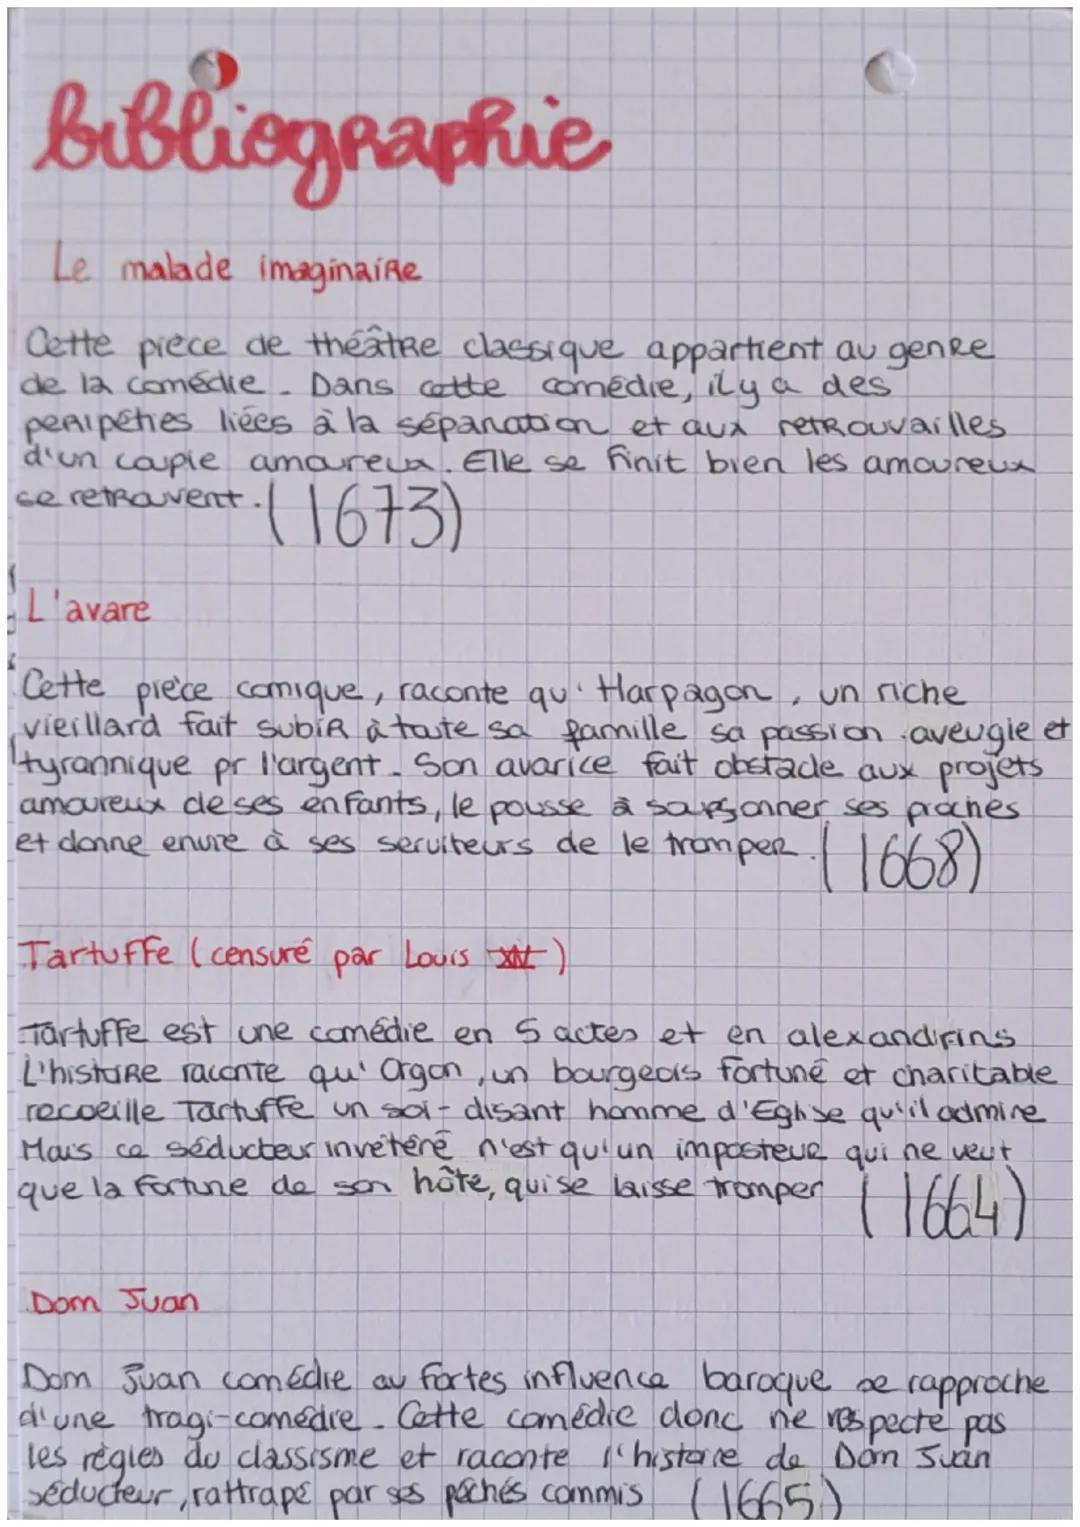 bibliographie
Le malade imaginaire
Cette pièce de théâtre classique appartient au genre
de la comédie. Dans cette comédie, il y a des
péripéties liées à la séparation et aux retrouvailles
d'un couple amoureux. Elle se finit bien les amoureux
se retrouvent. (1673)
L'avare
Cette pièce comique, raconte qu' Harpagon, un riche
vieillard fait subir à toute sa famille sa passion aveugle et
tyrannique pr l'argent. Son avarice fait obstacle aux projets
amoureux de ses enfants, le pousse à soupçonner ses proches
et donne envie à ses serviteurs de le tromper. (1668)
Tartuffe (censuré par Louis XIV)
Tartuffe est une comédie en 5 actes et en alexandrins
L'histoire raconte qu' Orgon, un bourgeois fortuné et charitable
recoeille Tartuffe un soi-disant homme d'Eglise qu'il admire
Mais ce séducteur invétéré n'est qu'un imposteur qui ne veut
que la fortune de son hôte, qui se laisse tromper (1664)
Dom Juan
Dom Juan comédie au fortes influence baroque se rapproche
d'une tragi-comédie. Cette comédie donc ne respecte pas
les règles du classisme et raconte l'histoire de Dom Juan
séducteur, rattrapé par ses péchés commis (1665)